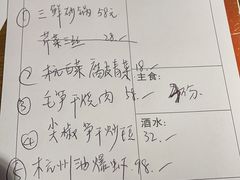 ① 三鲜砂锅 58元
芹菜三丝 28.-
② 杭白菜 腐皮青菜 18.-
主食:
③ 毛笋干烧肉 58.- 份
④ 尖椒笋干炒
酒水:
32.-
⑤ 杭州油爆虾 98.-